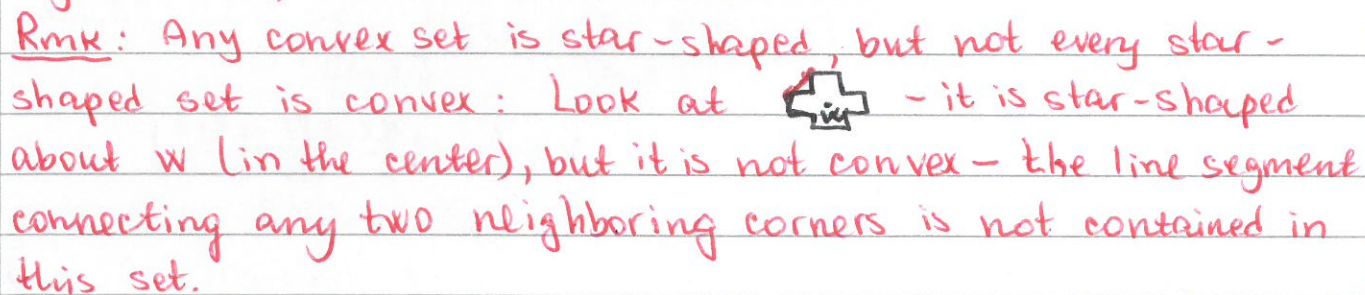 Rmk: Any convex set is star-shaped, but not every star-
shaped set is convex: Look at - it is star-shaped
about w (in the center), but it is not convex - the line segment
connecting any two neighboring corners is not contained in
this set.